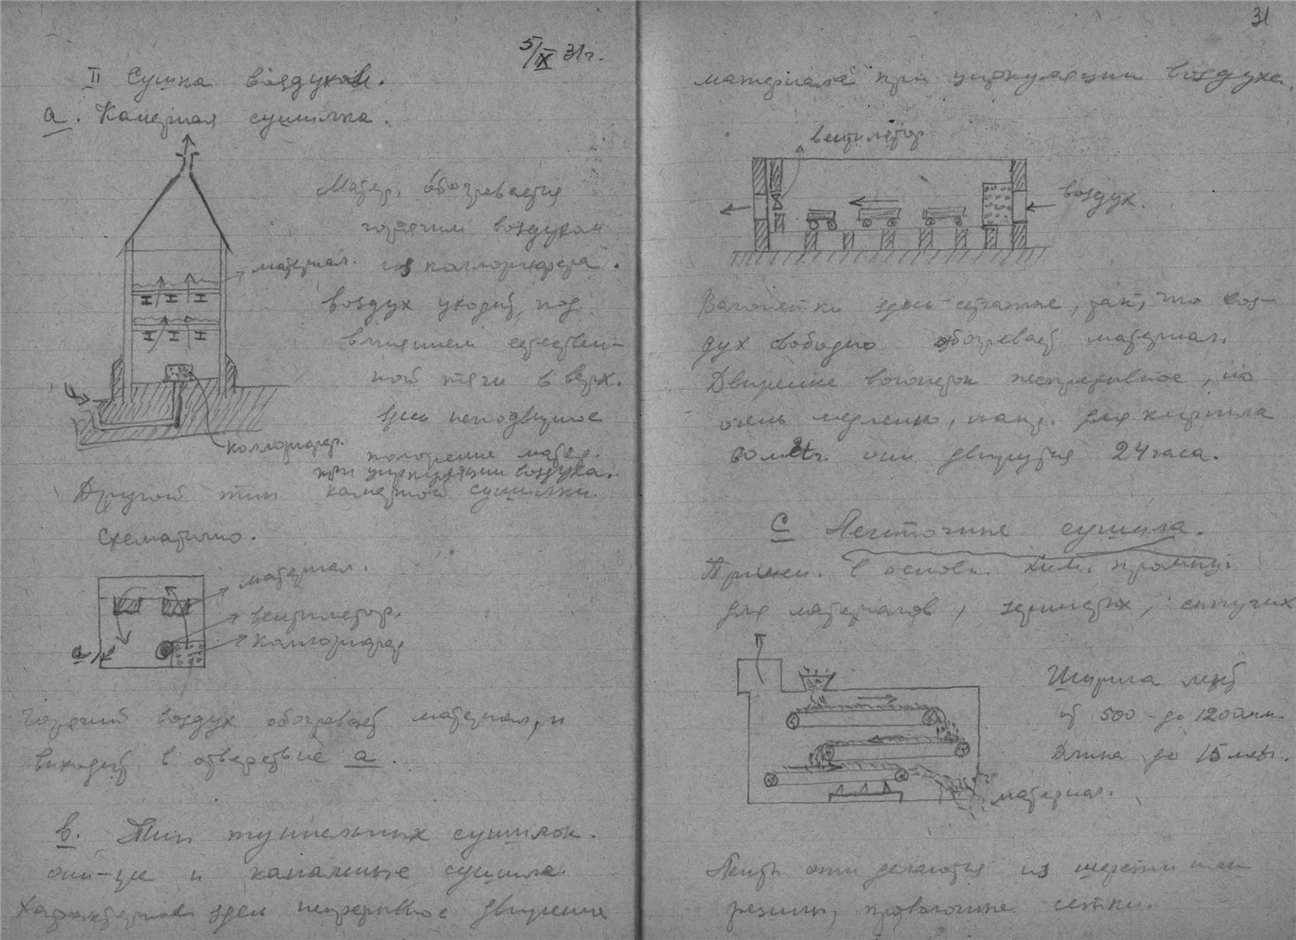 5/X 31г.
II Сушка воздухом.
а. Камерная сушилка.
Матер. обогревается
горячим воздухом
из каллорифера.
материал.
воздух уходит под
влиянием естествен-
ной тяги в верх.
Здесь неподвижное
каллорифер.
положение матер.
при циркуляции воздуха.
Другой тип камерной сушилки
схематично.
материал.
вентилятор.
каллорифер
а
Горячий воздух обогревает материал, и
выходит в отверстие а.
в. Тип туннельных сушилок.
они-же и канальные сушила
Характерно здесь непрерывное движение
31
материала при циркуляции воздуха.
вентилятор
воздух.
Вагонетки здесь, так, что воз-
дух свободно обогревает материал.
Движение вагонеток непрерывное, но
очень медленно, напр. для кирпича
60 метр. они движутся 24 часа.
С Ленточные сушила.
Примен. в основн. хим. промыш.
для материалов, зернистых, сыпучих
Ширина лент
от 500 до 1200 мм.
Длина до 15 метр.
материал.
Ленты эти делаются из шерсти или
резины, проволочные сетки.